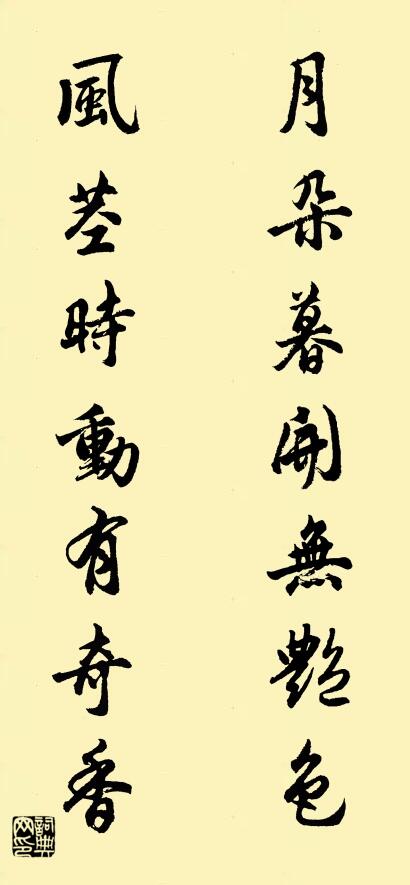 月朵暮開無艷色
風莖時動有奇香
詞典网印